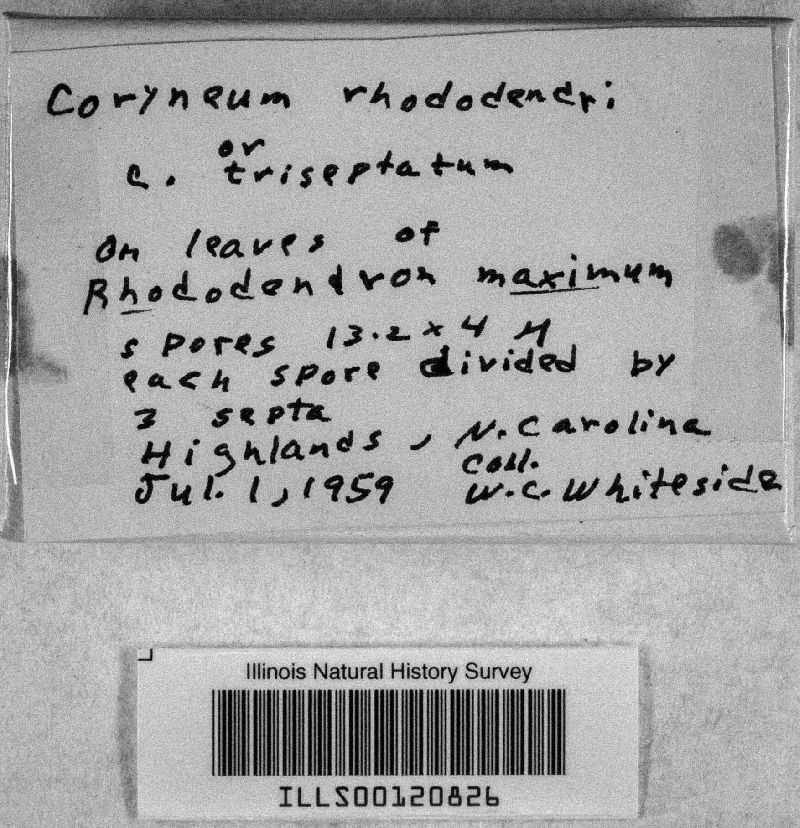 Coryneum rhododendri
or
c. triseptatum
on leaves of
Rhododendron maximum
spores 13.2 x 4 µ
each spore divided by
3 septa
Highlands, N. Carolina
Jul. 1, 1959 Coll. W.C. Whiteside
Illinois Natural History Survey
ILLS00120826